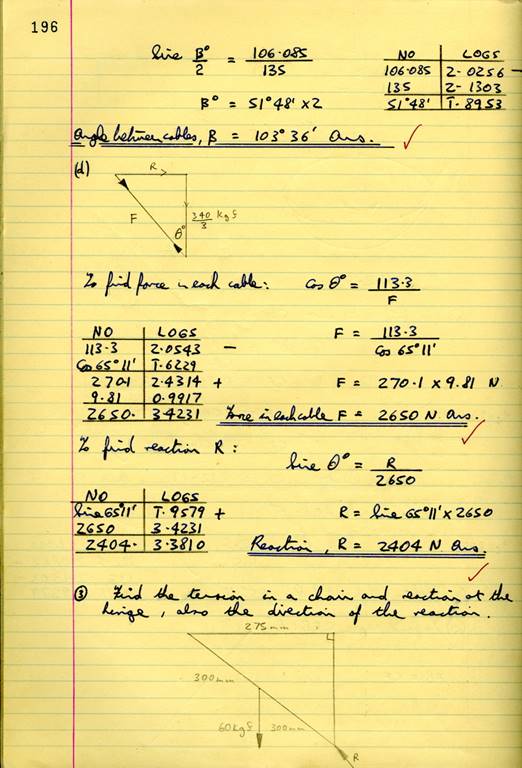 196
Sine B°/2 = 106.085/135
NO LOGS
106.085 2.0256 -
135 2.1303
51°48' T.8953
B° = 51°48' x 2
Angle between cables, B = 103°36' Ans. ✓
(d)
R
F
θ°
340/3 Kgf
To find force in each cable: Cos θ° = 113.3/F
NO LOGS
113.3 2.0543 -
Cos 65°11' T.6229
270.1 2.4314 +
9.81 0.9917
2650. 3.4231
F = 113.3/Cos 65°11'
F = 270.1 x 9.81 N
Force in each cable F = 2650 N Ans. ✓
To find reaction R:
Sine θ° = R/2650
NO LOGS
Sine 65°11' T.9579 +
2650 3.4231
2404. 3.3810
R = Sine 65°11' x 2650
Reaction, R = 2404 N Ans. ✓
③ Find the tension in a chain and reaction at the
hinge, also the direction of the reaction.
275mm
300mm
60Kgf 300mm
R